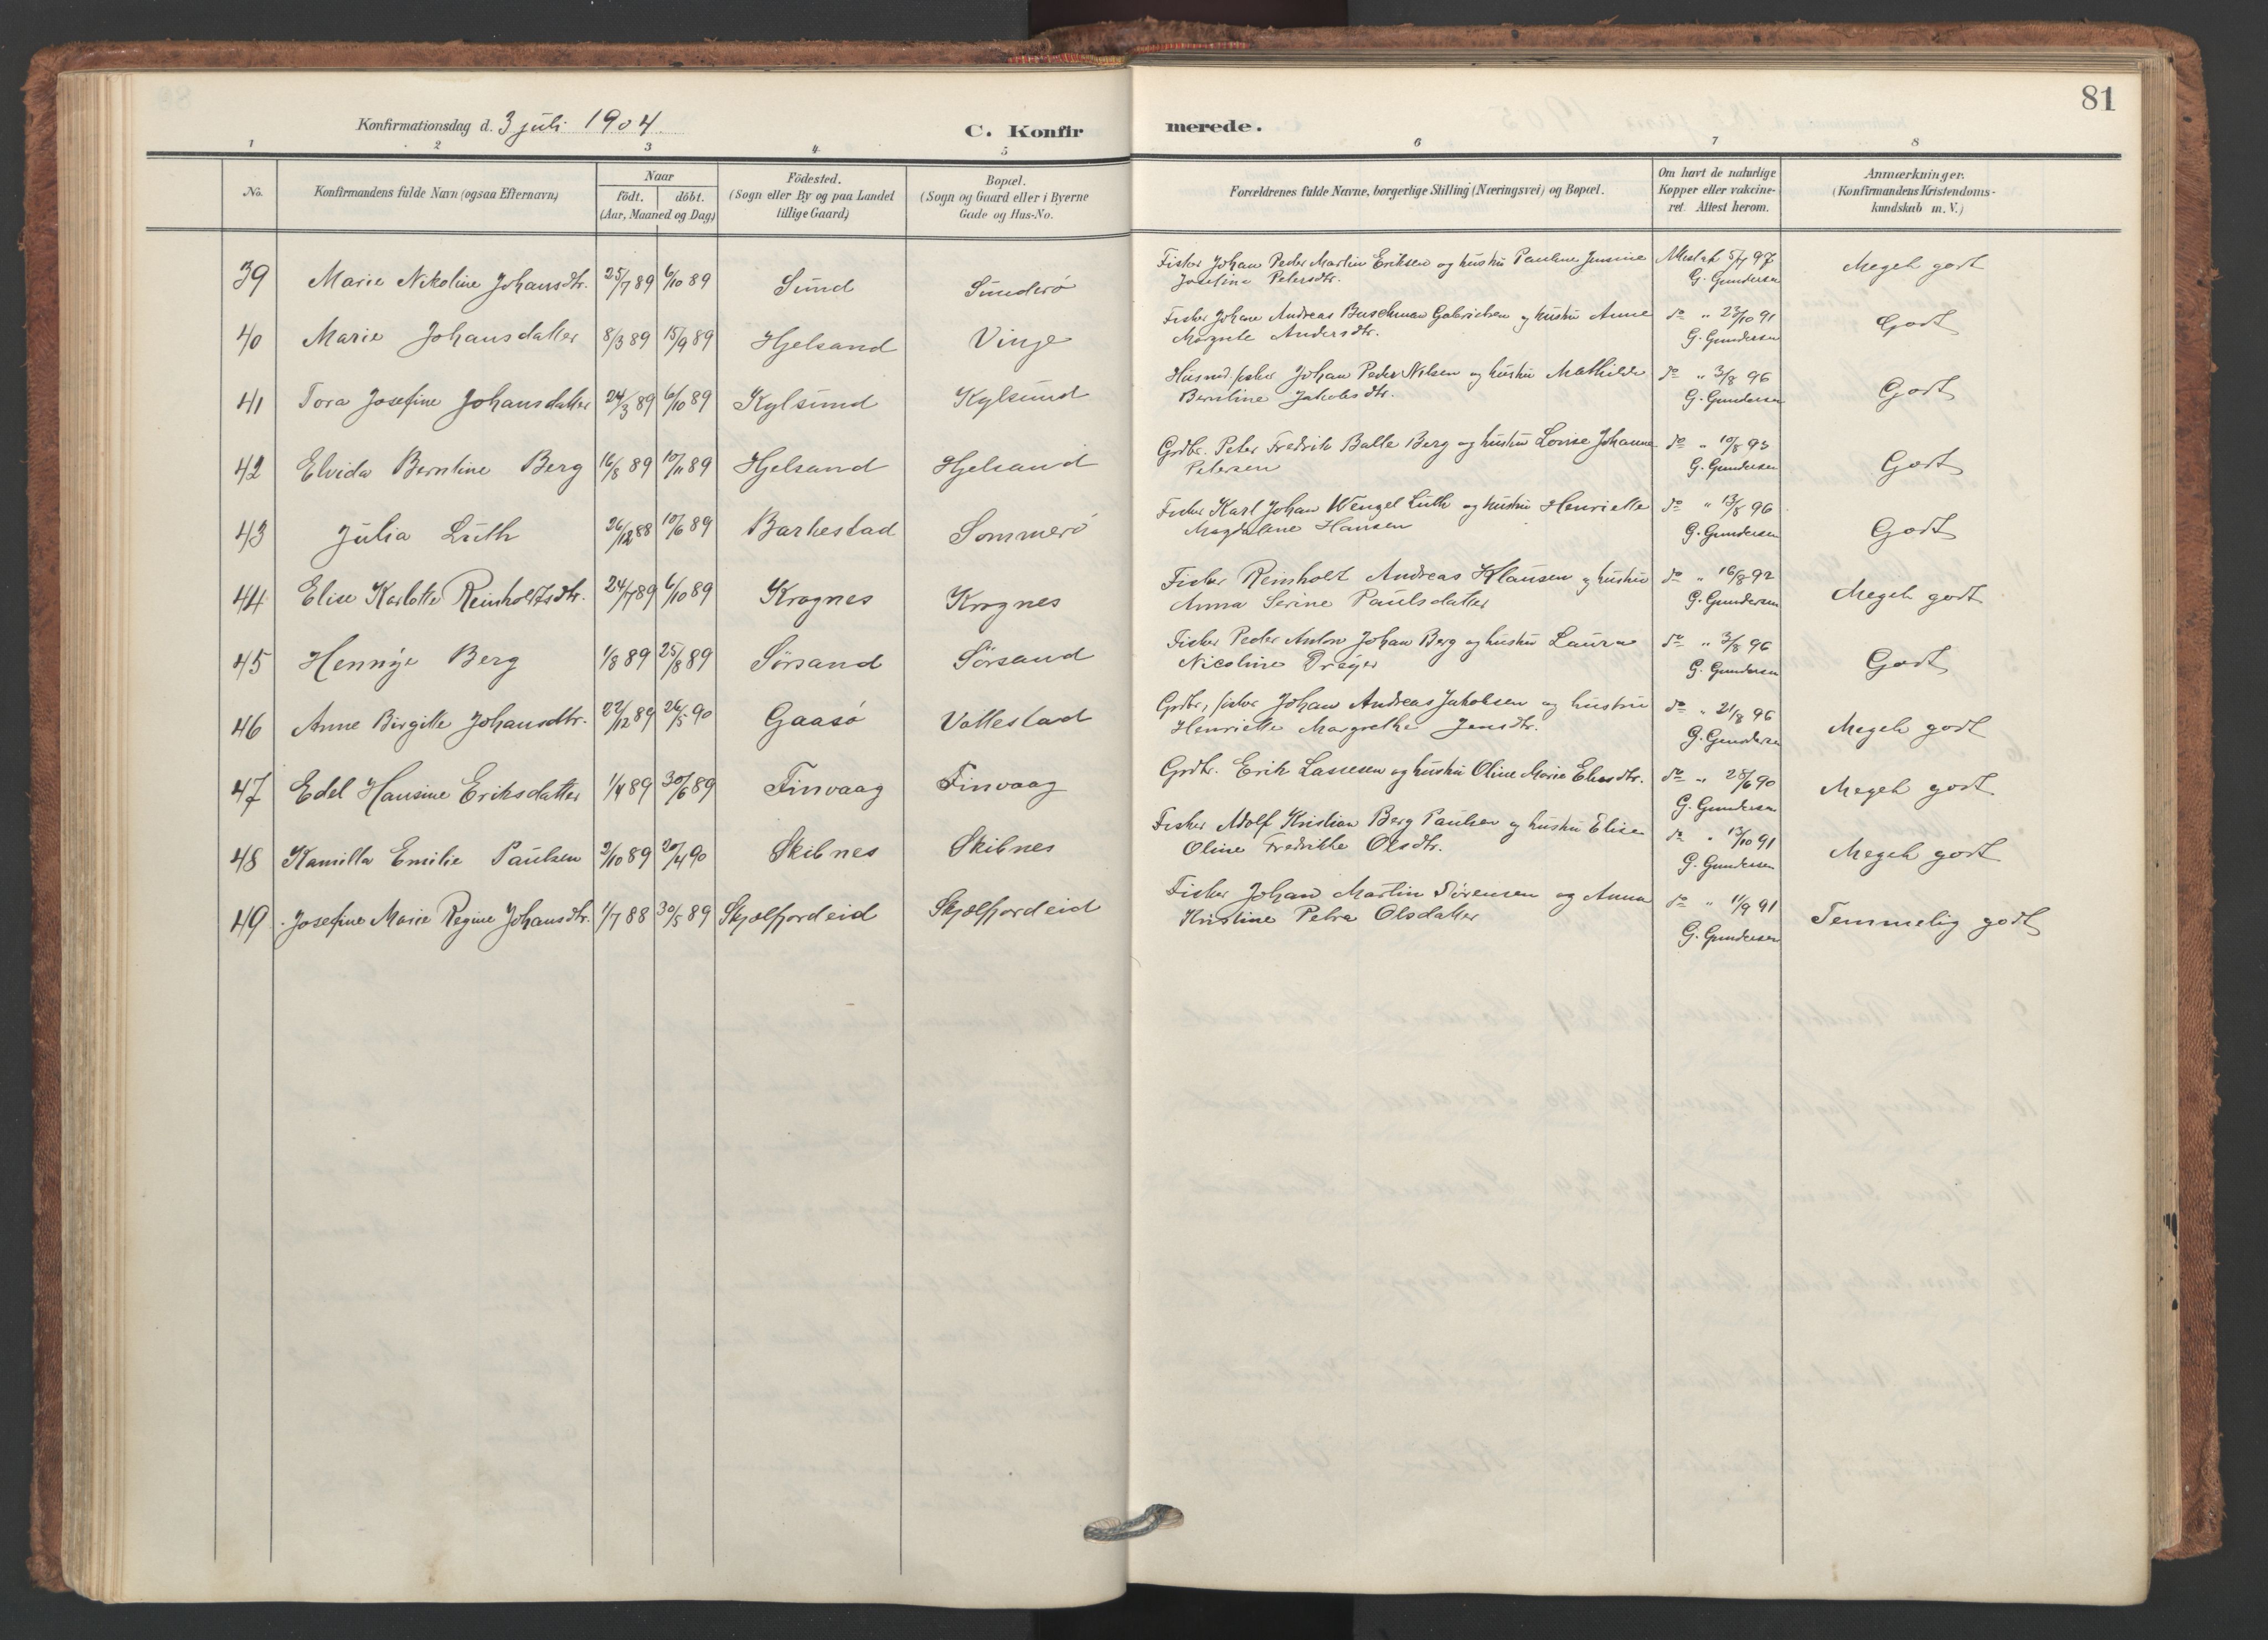 81
Konfirmationsdag d. 3 juli 1904. C. Konfirmerede.
1 2 3 4 5 6 7 8
No. Konfirmandens fulde Navn (ogsaa Efternavn) Naar födt. döbt. (Aar, Maaned og Dag) Födested. (Sogn eller By og paa Landet tillige Gaard) Bopæl. (Sogn og Gaard eller i Byerne Gade og Hus-No. Forældrenes fulde Navne, borgerlige Stilling (Næringsvei) og Bopæl. Om havt de naturlige Kopper eller vakcineret. Attest herom. Anmærkninger. (Konfirmandens Kristendomskundskab m. V.)
39 Marie Nikoline Johansdtr. 25/7 89 6/10 89 Sund Sunderö Fisker Johan Peder Martin Eriksen og hustru Pauline Jensine Attest af 5/7 97 Meget godt
Josefine Petersdtr. G. Gundersen
40 Marie Johansdatter 8/3 89 15/9 89 Hjelsand Vinje Fisker Johan Andreas Buschman Gabrielsen og hustru Anne do " 23/10 91 Godt
Margrete Andersdtr. G. Gundersen
41 Tora Josefine Johansdatter 24/3 89 6/10 89 Kylsund Kylsund Husmd fisker Johan Peder Nilsen og hustru Mathilde do " 3/8 96 Godt
Berntine Jakobsdtr. G. Gundersen
42 Elvida Berntine Berg 16/8 89 10/11 89 Hjelsand Hjelsand Grdbr. Peter Fredrik Balle Berg og hustru Lovise Johanne do " 10/8 93 Godt
Petersen G. Gundersen
43 Julia Lüth 26/12 88 10/6 89 Barkestad Sommerö Fisker Karl Johan Wenzel Lüth og hustru Henriette do " 13/8 96 Godt
Magdalene Hansen G. Gundersen
44 Elise Karlotte Reinholdtsdtr. 24/7 89 6/10 89 Krognes Krognes Fisker Reinholt Andreas Klausen og hustru do " 16/8 92 Meget godt
Anna Serine Paulsdatter G. Gundersen
45 Hennÿe Berg 1/8 89 25/8 89 Sörsand Sörsand Fisker Peder Anton Johan Berg og hustru Laura do " 3/8 96 Godt
Nicoline Dreÿer G. Gundersen
46 Anne Birgitte Johansdtr. 22/12 89 26/5 90 Gaasö Vottestad Grdbr, fisker Johan Andreas Jakobsen og hustru do " 21/8 96 Meget godt
Henriette Margrethe Jensdtr. G. Gundersen
47 Edel Hansine Eriksdatter 1/4 89 30/6 89 Finvaag Finvaag Grdbr. Erik Lassesen og hustru Oline Marie Eliasdtr. do " 28/6 90 Meget godt
G. Gundersen
48 Kamilla Emilie Paulsen 2/10 89 20/4 90 Skibnes Skibnes Fisker Adolf Kristian Berg Paulsen og hustru Elise do " 13/10 91 Meget godt
Oline Fredrikke Olsdtr. G. Gundersen
49 Josefine Marie Regine Johansdtr. 1/7 88 30/5 89 Skjælfjordeid Skjælfjordeid Fisker Johan Martin Sörensen og Anna do " 11/9 91 Temmelig godt
Kristine Petra Olsdatter G. Gundersen